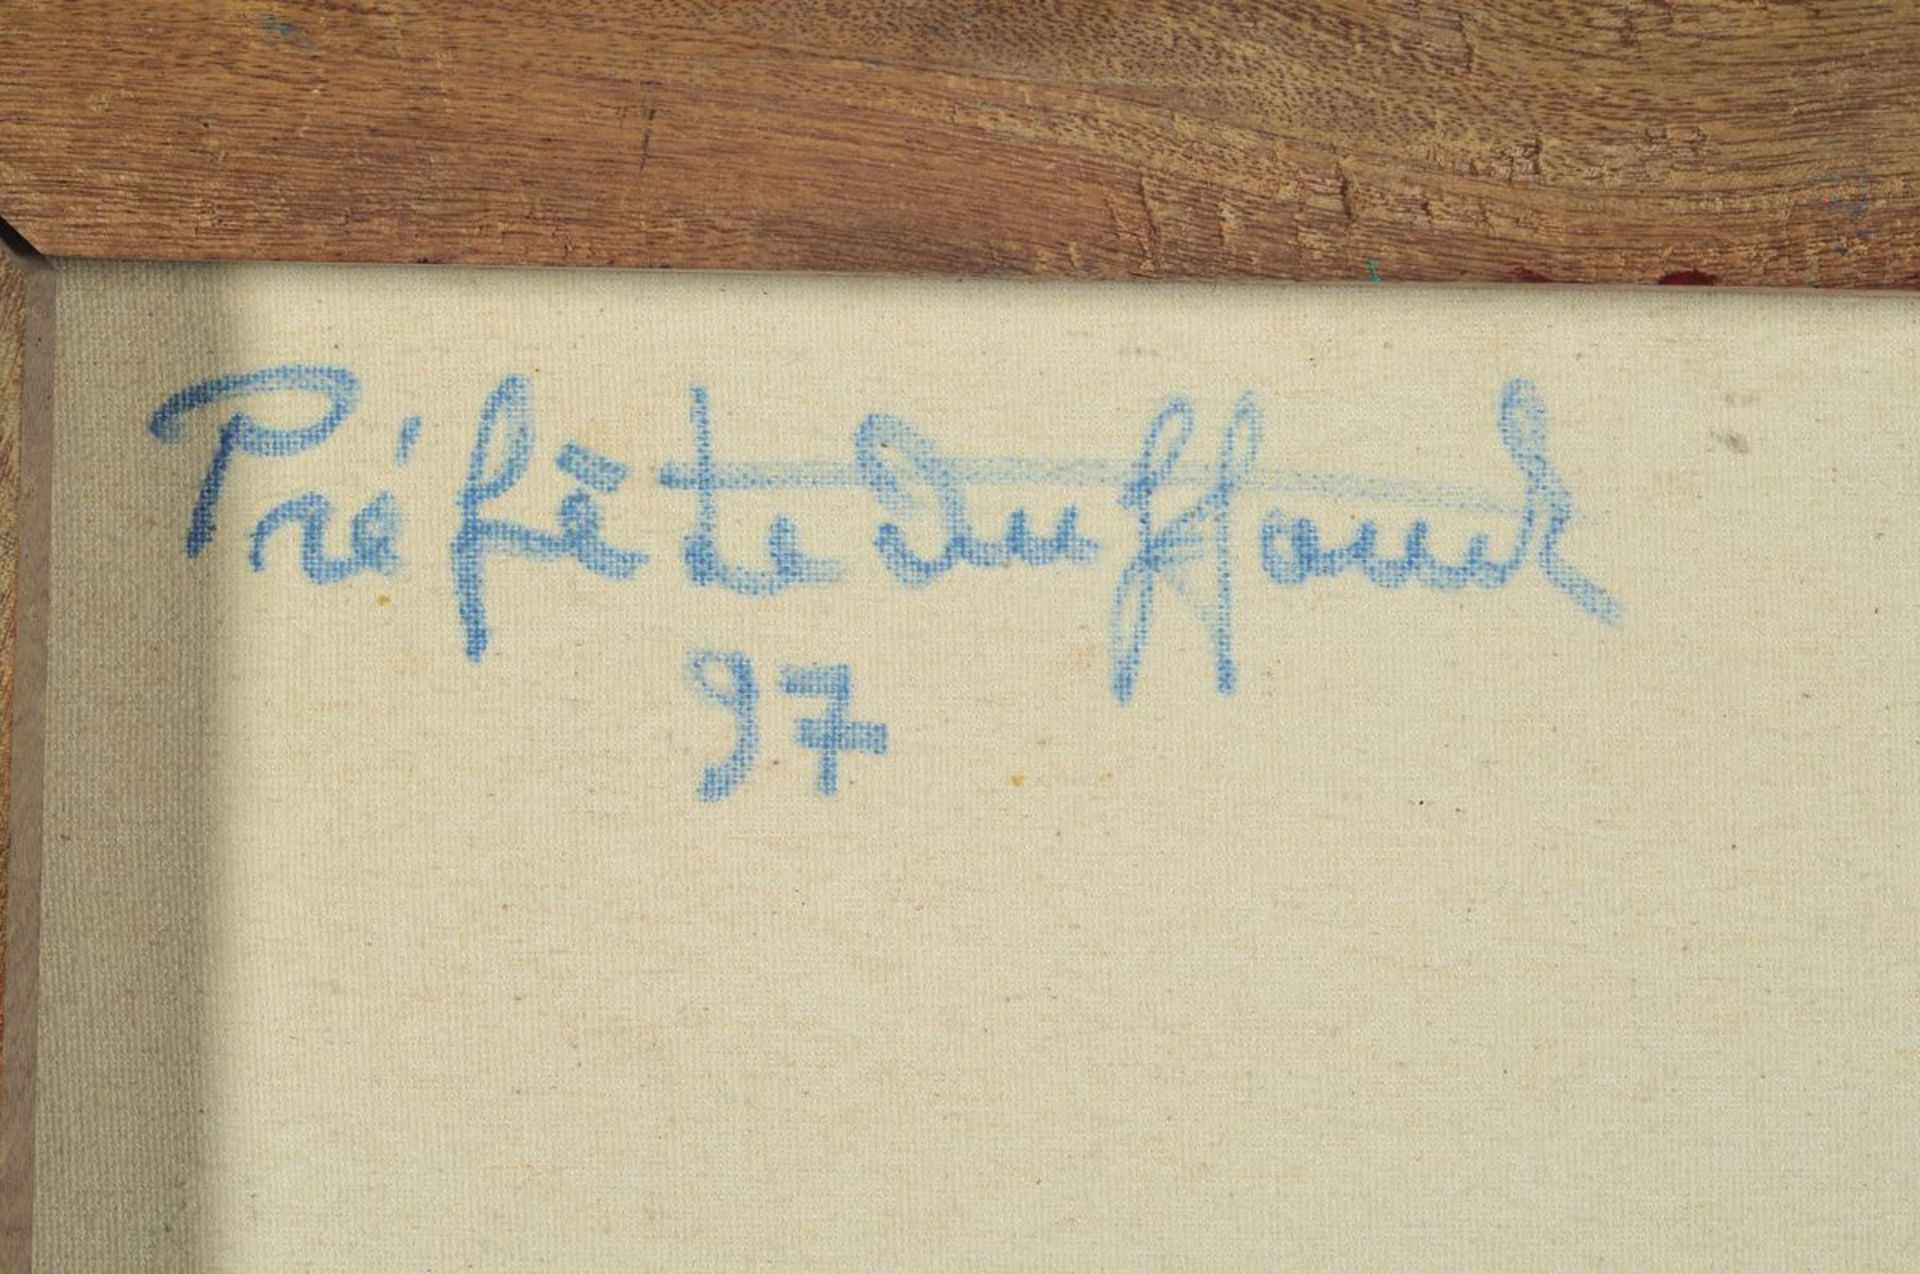 Préfète Duffaut
97